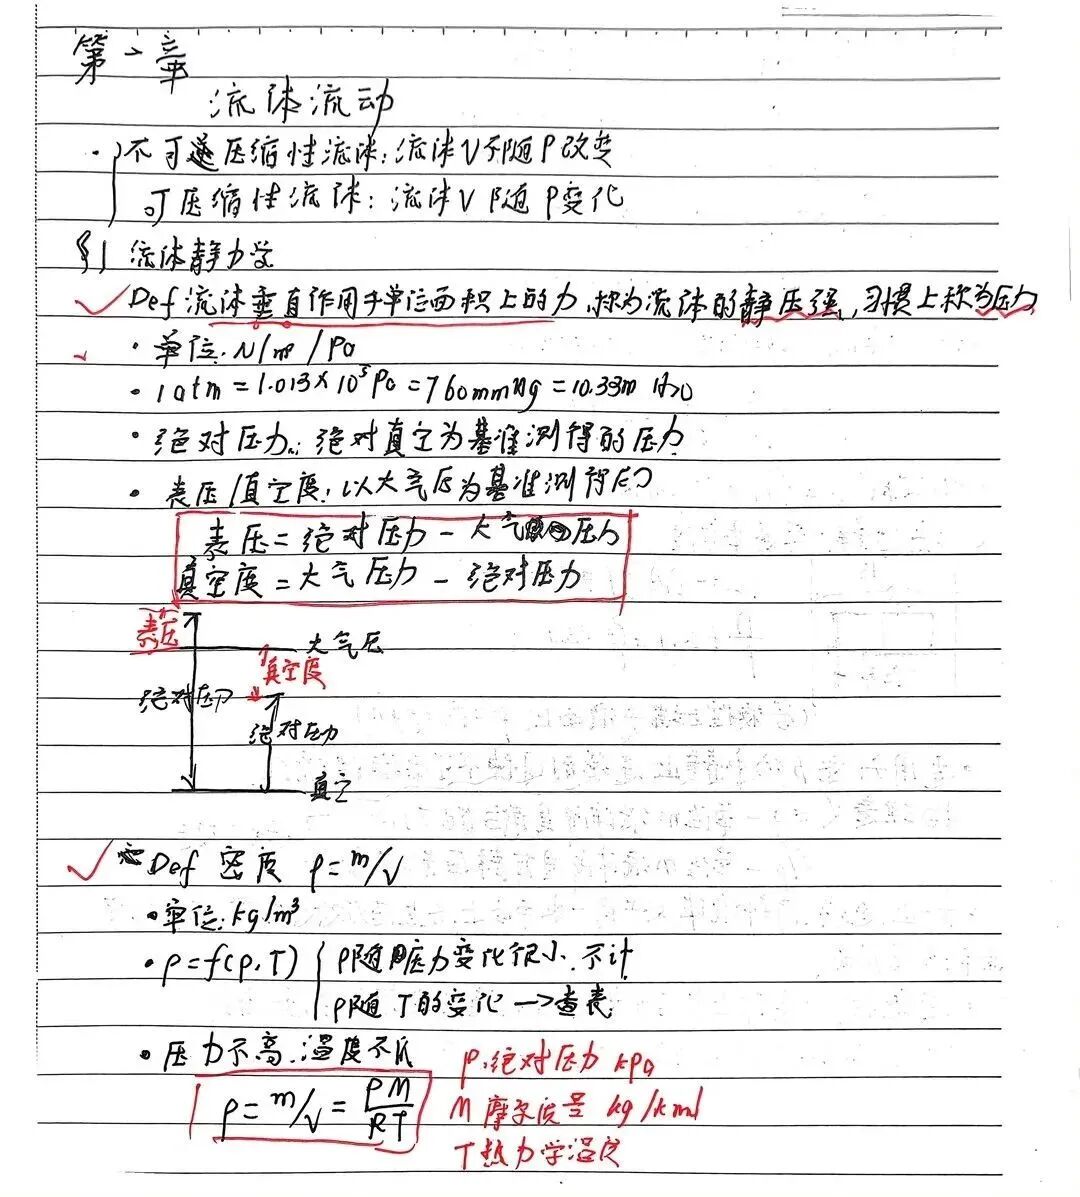 第一章
流体流动
不可压缩性流体:流体V不随P改变
可压缩性流体:流体V随P变化
§1 流体静力学
Def 流体垂直作用于单位面积上的力,称为流体的静压强,习惯上称为压力
·单位:N/m² /Pa
·1atm=1.013×10⁵Pa=760mmHg=10.33m H₂O
·绝对压力:绝对真空为基准测得的压力
·表压/真空度:以大气压为基准测得的
表压=绝对压力-大气压力
真空度=大气压力-绝对压力
表压
大气压
真空度
绝对压力
绝对压力
真空
Def 密度 ρ=m/V
·单位:kg/m³
·ρ=f(p,T) ρ随压力变化很小,不计
ρ随T的变化→查表
·压力不高,温度不低
ρ=m/V=PM/RT
P:绝对压力 kPa
M 摩尔质量 kg/kmol
T 热力学温度